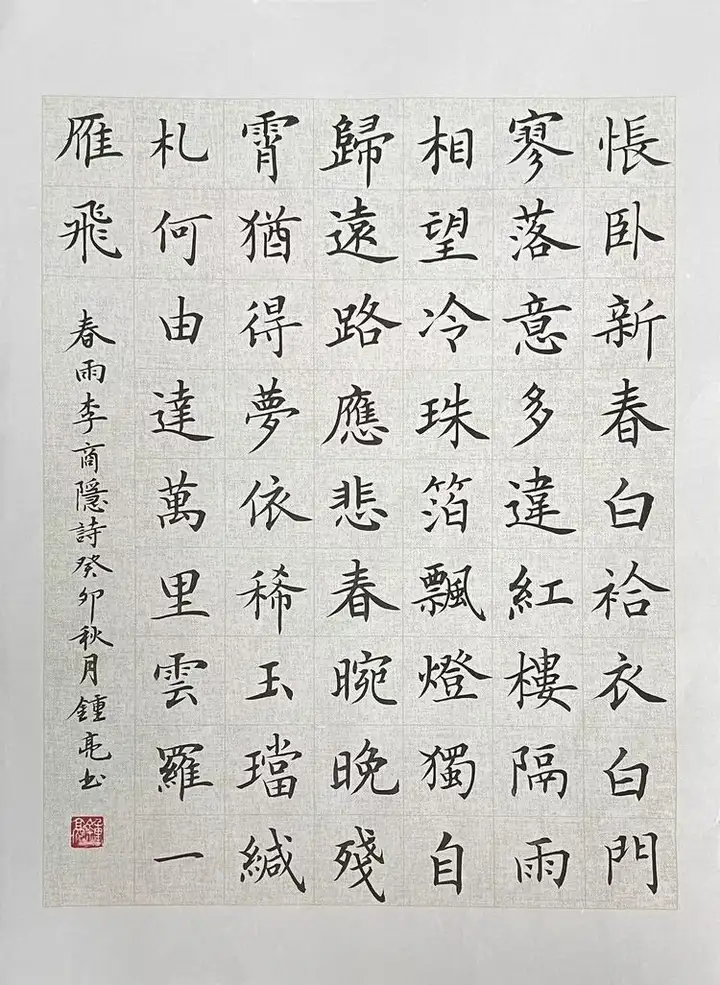 悵卧新春白袷衣白門
寥落意多違紅樓隔雨
相望冷珠箔飄燈獨自
歸遠路應悲春晼晚殘
霄猶得夢依稀玉璫緘
札何由達萬里雲羅一
雁飛
春雨李商隱詩癸卯秋月鍾亮书